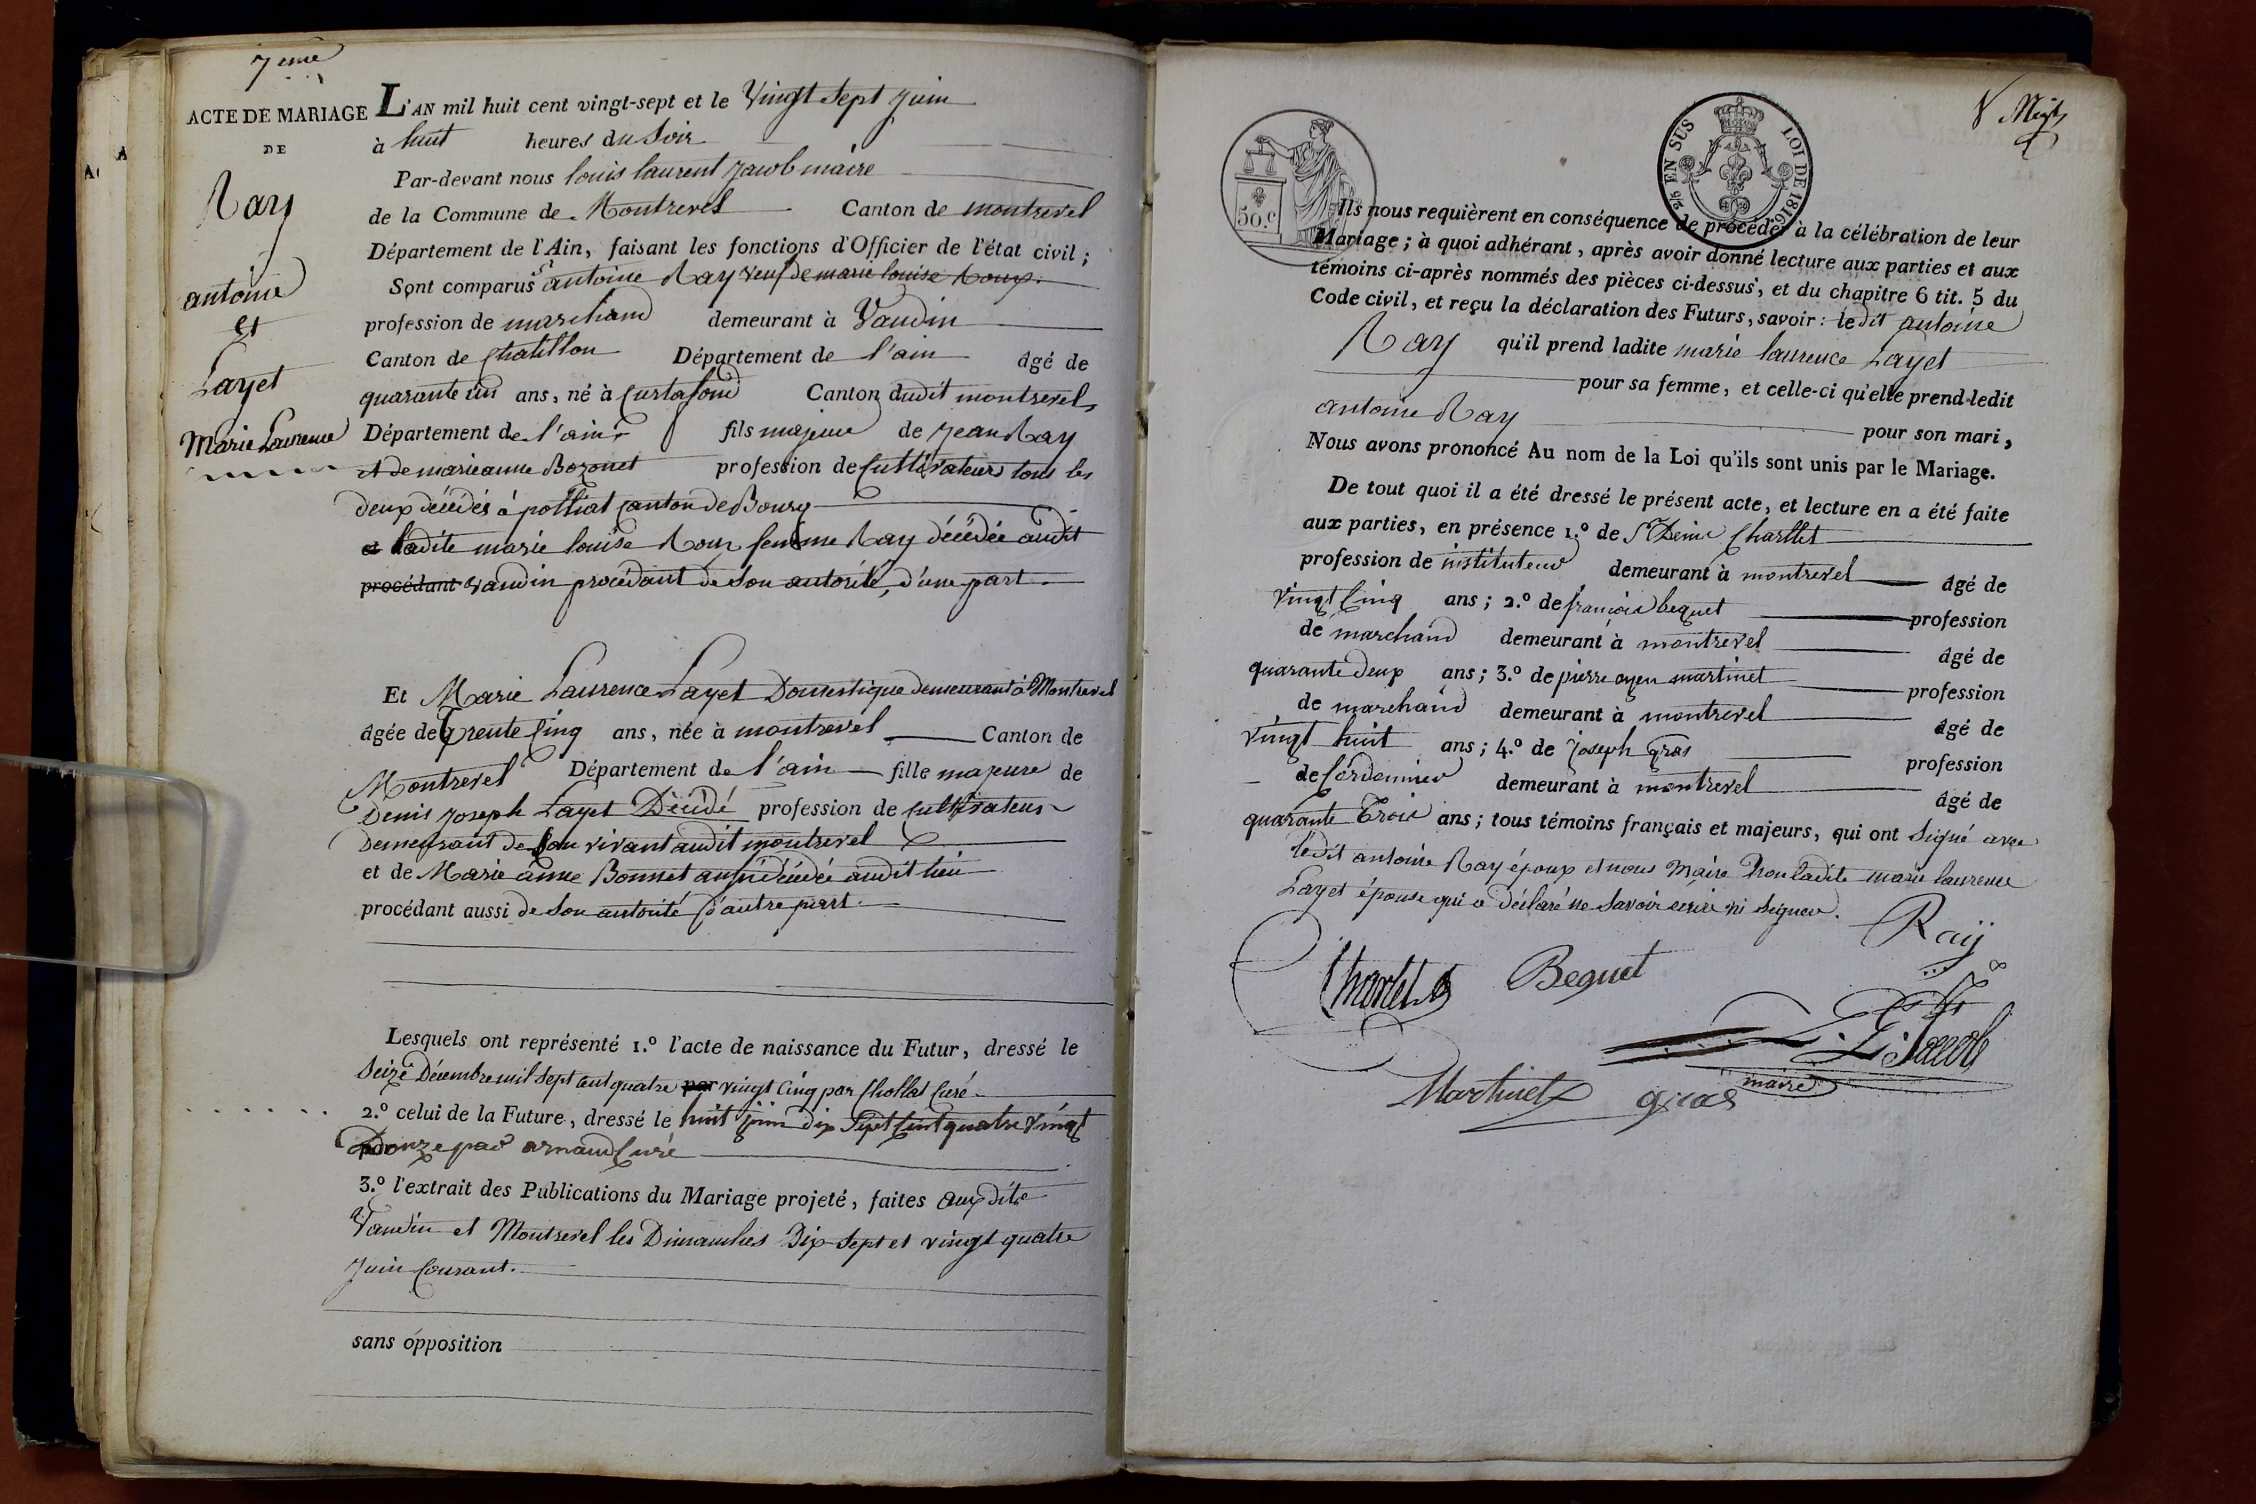 7eme
ACTE DE MARIAGE
DE
Ray
antoine
et
Layet
Marie Laurence
L'AN mil huit cent vingt-sept et le Vingt Sept Juin
à huit heures du Soir
Par-devant nous louis laurent Jacob maire
de la Commune de Montrevel Canton de montrevel
Département de l'Ain, faisant les fonctions d'Officier de l'état civil;
Sont comparus Sr antoine Ray veuf de marie louise Roux
profession de marchand demeurant à Vandin
Canton de Chatillon Département de l'ain âgé de
quarante un ans, né à Curtafond Canton dudit montrevel
Département de l'ain fils majeur de Jean Ray
et de marieanne Bozonet profession de Cultivateurs tous les
deux décédés à polliat canton de Bourg
et ladite marie louise Roux femme Ray décédée audit
procédant vandin procédant de Son autorité, d'une part
Et Marie Laurence Layet Domestique demeurant à Montrevel
âgée de Trente Cinq ans, née à montrevel Canton de
Montrevel Département de l'ain fille majeure de
Denis Joseph Layet Décédé profession de Cultivateur
Demeurant de Son vivant audit montrevel
et de Marie anne Bonnet aussi décédée audit lieu
procédant aussi de Son autorité d'autre part.
Lesquels ont représenté 1.º l'acte de naissance du Futur, dressé le
Seize Décembre mil Sept cent quatre par vingt Cinq par Chollat Curé
2.º celui de la Future, dressé le huit juin dix Sept Cent quatre vingt
Douze par armand Curé
3.º l'extrait des Publications du Mariage projeté, faites auxdits
Vandin et Montrevel les Dimanches Dix Sept et vingt quatre
Juin Courant.
sans opposition
50.c
2/5 EN SUS
LOI DE 1816
Ils nous requièrent en conséquence de procéder à la célébration de leur
Mariage; à quoi adhérant, après avoir donné lecture aux parties et aux
témoins ci-après nommés des pièces ci-dessus, et du chapitre 6 tit. 5 du
Code civil, et reçu la déclaration des Futurs, savoir: ledit antoine
Ray qu'il prend ladite marie laurence Layet
pour sa femme, et celle-ci qu'elle prend ledit
antoine Ray pour son mari,
Nous avons prononcé Au nom de la Loi qu'ils sont unis par le Mariage.
De tout quoi il a été dressé le présent acte, et lecture en a été faite
aux parties, en présence 1.º de Sr Denis Charllet
profession de instituteur demeurant à montrevel âgé de
vingt Cinq ans; 2.º de françois bequet profession
de marchand demeurant à montrevel âgé de
quarante deux ans; 3.º de pierre martinet profession
de marchand demeurant à montrevel âgé de
vingt huit ans; 4.º de Joseph gras profession
de Cordonnier demeurant à montrevel âgé de
quarante Trois ans; tous témoins français et majeurs, qui ont Signé avec
ledit antoine Ray époux et nous Maire Non ladite marie laurence
Layet épouse qui a déclaré ne Savoir écrire ni Signer.
Raÿ
Charlet Bequet
L. L. Jacob
maire
Martinet gras